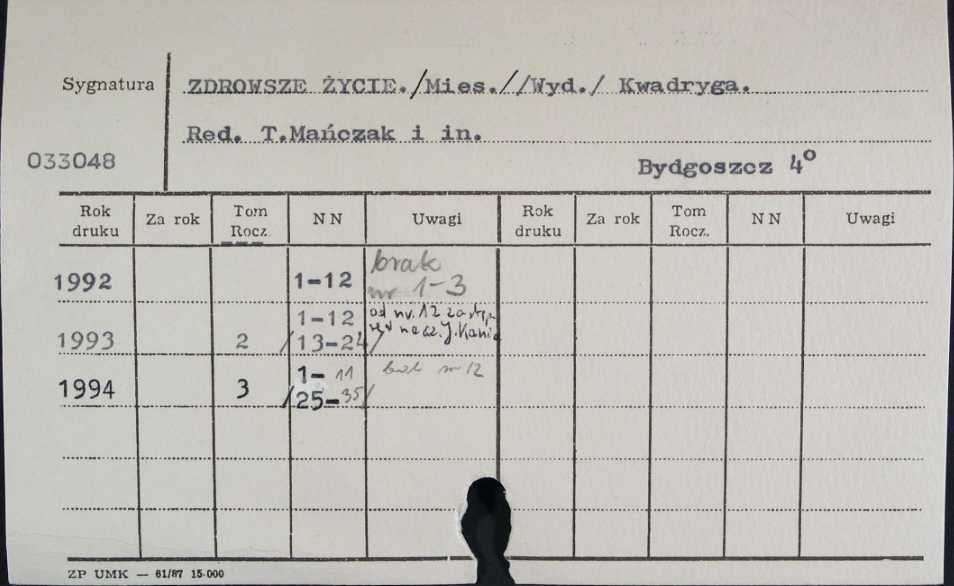 Sygnatura
ZDROWSZE ŻYCIE./Mies.//Wyd./ Kwadryga.
Red. T.Mańczak i in.
033048
Bydgoszcz 4º
Rok druku Za rok Tom Rocz. NN Uwagi Rok druku Za rok Tom Rocz. NN Uwagi
1992 1-12 brak nr 1-3
1993 2 1-12 /13-24/ od nr. 12 zastęp. red nacz. J. Kania
1994 3 1-11 /25-35/ brak nr 12
ZP UMK — 61/87 15-000